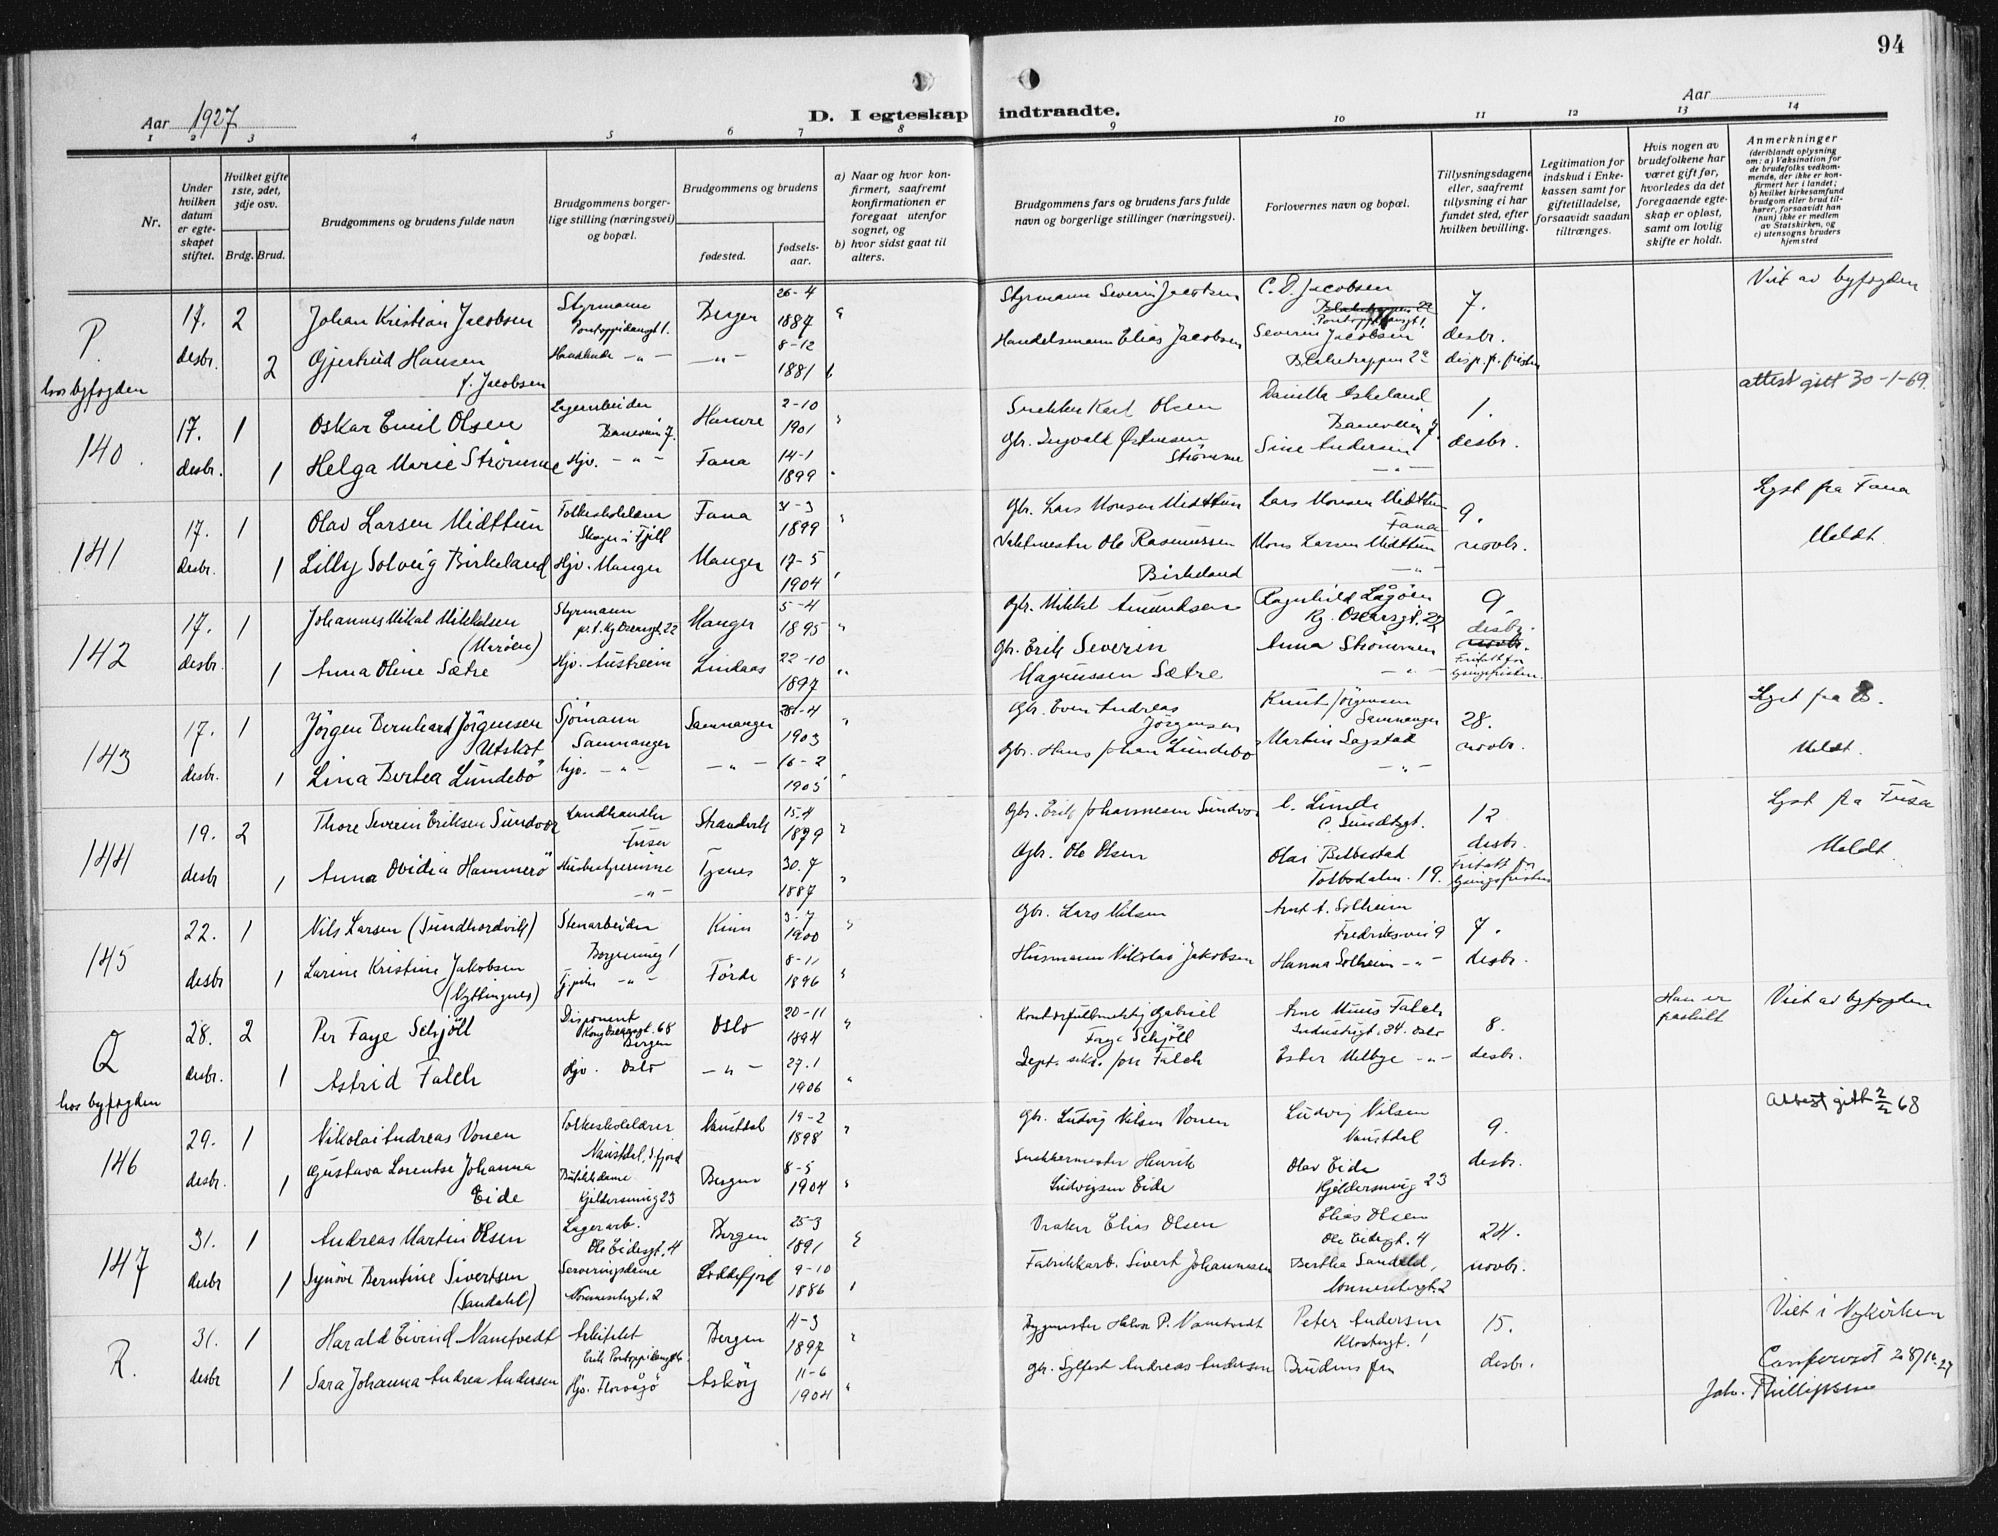 94
Aar 1927
D. I egteskap indtraadte.
Aar
1 2 3 4 5 6 7 8 9 10 11 12 13 14
Nr.
Under hvilken datum er egteskapet stiftet.
Hvilket gifte 1ste, 2det, 3dje osv.
Brdg. Brud.
Brudgommens og brudens fulde navn
Brudgommens borgerlige stilling (næringsvei) og bopæl.
Brudgommens og brudens
fødested.
fødselsaar.
a) Naar og hvor konfirmert, saafremt konfirmationen er foregaat utenfor sognet, og
b) hvor sidst gaat til alters.
Brudgommens fars og brudens fars fulde navn og borgerlige stillinger (næringsvei).
Forlovernes navn og bopæl.
Tillysningsdagene eller, saafremt tillysning ei har fundet sted, efter hvilken bevilling.
Legitimation for indskud i Enkekassen samt for giftetilladelse, forsaavidt saadan tiltrænges.
Hvis nogen av brudefolkene har været gift før, hvorledes da det foregaaende egteskap er opløst, samt om lovlig skifte er holdt.
Anmerkninger
(deriblandt oplysning om: a) Vaksination for de brudefolks vedkommende, der ikke er konfirmert her i landet;
b) hvilket kirkesamfund brudgom eller brud tilhører, forsaavidt han (hun) ikke er medlem av Statskirken, og
c) utensogns bruders hjemsted
P. hos byfogden
17. desbr. 2
Johan Kristian Jacobsen
Styrmann Pontoppidansgt 1.
Bergen 26-4 1887
Styrmann Severin Jacobsen
C. D. Jacobsen
Pontoppidansgt 1.
7. desbr. disp. f. fristen
Viet av byfogden
2 Gjertrud Hansen f. Jacobsen
8-12 1881
Handelsmann Elias Jacobsen
Severin Jacobsen
Blekketrappen 2a
140.
17. desbr. 1
Oskar Emil Olsen
Lagerarbeider Baneveien 7.
Hamre 2-10 1901
Snekker Karl Olsen
Danilla Eskeland
Baneveien 7.
1. desbr.
attest gitt 30-1-69.
1 Helga Marie Strømme
Hjv. Fana 14-1 1899
Gbr. Ingvald Østensen Strømme
Sine Andersen
141
17. desbr. 1
Olav Larsen Midttun
Folkeskolelærer Skoge i Fjell
Fana 31-3 1899
Gbr. Lars Monsen Midttun
Lars Monsen Midttun Fana
9. novbr.
Lyst fra Fana
Meldt.
1 Lilly Solveig Birkeland
Hjv. Manger
Manger 17-5 1904
Vaktmester Ole Rasmussen Birkeland
Mons Larsen Midttun
142
17. desbr. 1
Johannes Mikal Mikkelsen (Marøen)
Styrmann
p.t. Kg Oscarsgt. 22
Manger 5-4 1895
Gbr. Mikkel Amundsen
Ragnhild Lågøen
Kg. Oscarsgt. 22
9. desbr.
Fritatt for lysingsfristen.
1 Anna Oline Sætre
Hjv. Austrheim
Lindaas 22-10 1897
Gbr. Erik Severin Magnussen Sætre
Anna Strömmen
143
17. desbr. 1
Jörgen Bernhard Jörgensen Utskot
Sjömann Samnanger
Samnanger 28-4 1903
Gbr. Even Andreas Jörgensen
Knut Jörgensen Samnanger
28. novbr.
Lyst fra S.
Meldt.
1 Lina Bertea Lundebö
Hjv. 16-2 1905
Gbr. Hans Johan Lundebö
Martin Sagstad
144
19. desbr 2
Thore Severin Eriksen Sundvor
Landhandler Fusa
Strandvik 15-4 1879
Gbr. Erik Johannesen Sundvor
C. Sundtsgt.
12 desbr.
Fritatt for lysingsfristen
Lyst fra Fusa
Meldt.
1 Anna Ovidia Hammerö
Husbestyrerinne
Tysnes 30.7 1887
Gbr. Ole Olsen
Tolbodalm. 19.
145
22. desbr 1
Nils Larsen (Sundhordvik)
Stenarbeider
Kinn 3-7 1900
Gbr. Lars Nilsen
Arnt A. Solheim
Fredriksvei 9
7. desbr.
1 Larine Kristine Jakobsen (Nyttingnes)
Tj.pike
Förde 8-11 1896
Husmann Nikolai Jakobsen
Hanna Solheim
Q hos byfogden
28. desbr. 2
Per Faye Schjöll
Disponent Kong Oscarsgt. 68 Bergen
Oslo 20-11 1894
Kontorfullmektig Gabriel Faye Schjöll
Arne Munis Falch
Industrigt. 34. Oslo
8. desbr.
Han er fraskilt
Viet av byfogden
1 Astrid Falch
Hjv. Oslo 27.1 1906
Ester Melbye
146
29. desbr. 1
Nikolai Andreas Vonen
Folkeskolelærer Naustdal, S.fjord
Naustdal 19-2 1898
Gbr. Ludvig Nilsen Vonen
Ludvig Nilsen Naustdal
9. desbr.
Attest gitt 2/2 68
1 Gustava Lorentse Johanna Eide
Butikkdame Kjeldersmug 23
Bergen 8-5 1904
Snekkermester Henrik Ludvigsen Eide
Olav Eide
Kjeldersmug 23
147
31. desbr 1
Andreas Martin Olsen
Lagerarb. Ole Eidesgt. 4
Bergen 25-3 1891
Vraker Elias Olsen
Elias Olsen
Ole Eidesgt. 4
24. novbr.
1 Synöve Berntine Sivertsen (Sandahl)
Serveringsdame
Loddefjord 9-10 1886
Fabrikkarb. Sivert Johannesen
Bertha Sandahl,
R.
31. desbr 1
Harald Eivind Namtvedt
Arkitekt
Erik Pontoppidansgt.
Bergen 11-3 1897
Bygmester Halvor P. Namtvedt
Peter Andersen
Klostergt. 1
15. desbr.
Viet i Nykirken
1 Sara Johanna Andrea Andersen
Hjv. Florvåg
Asköy 11-6 1904
Gbr. Sylfest Andreas Andersen
Brudens far
Conferert 28/12 27
Joh. Phillipsen